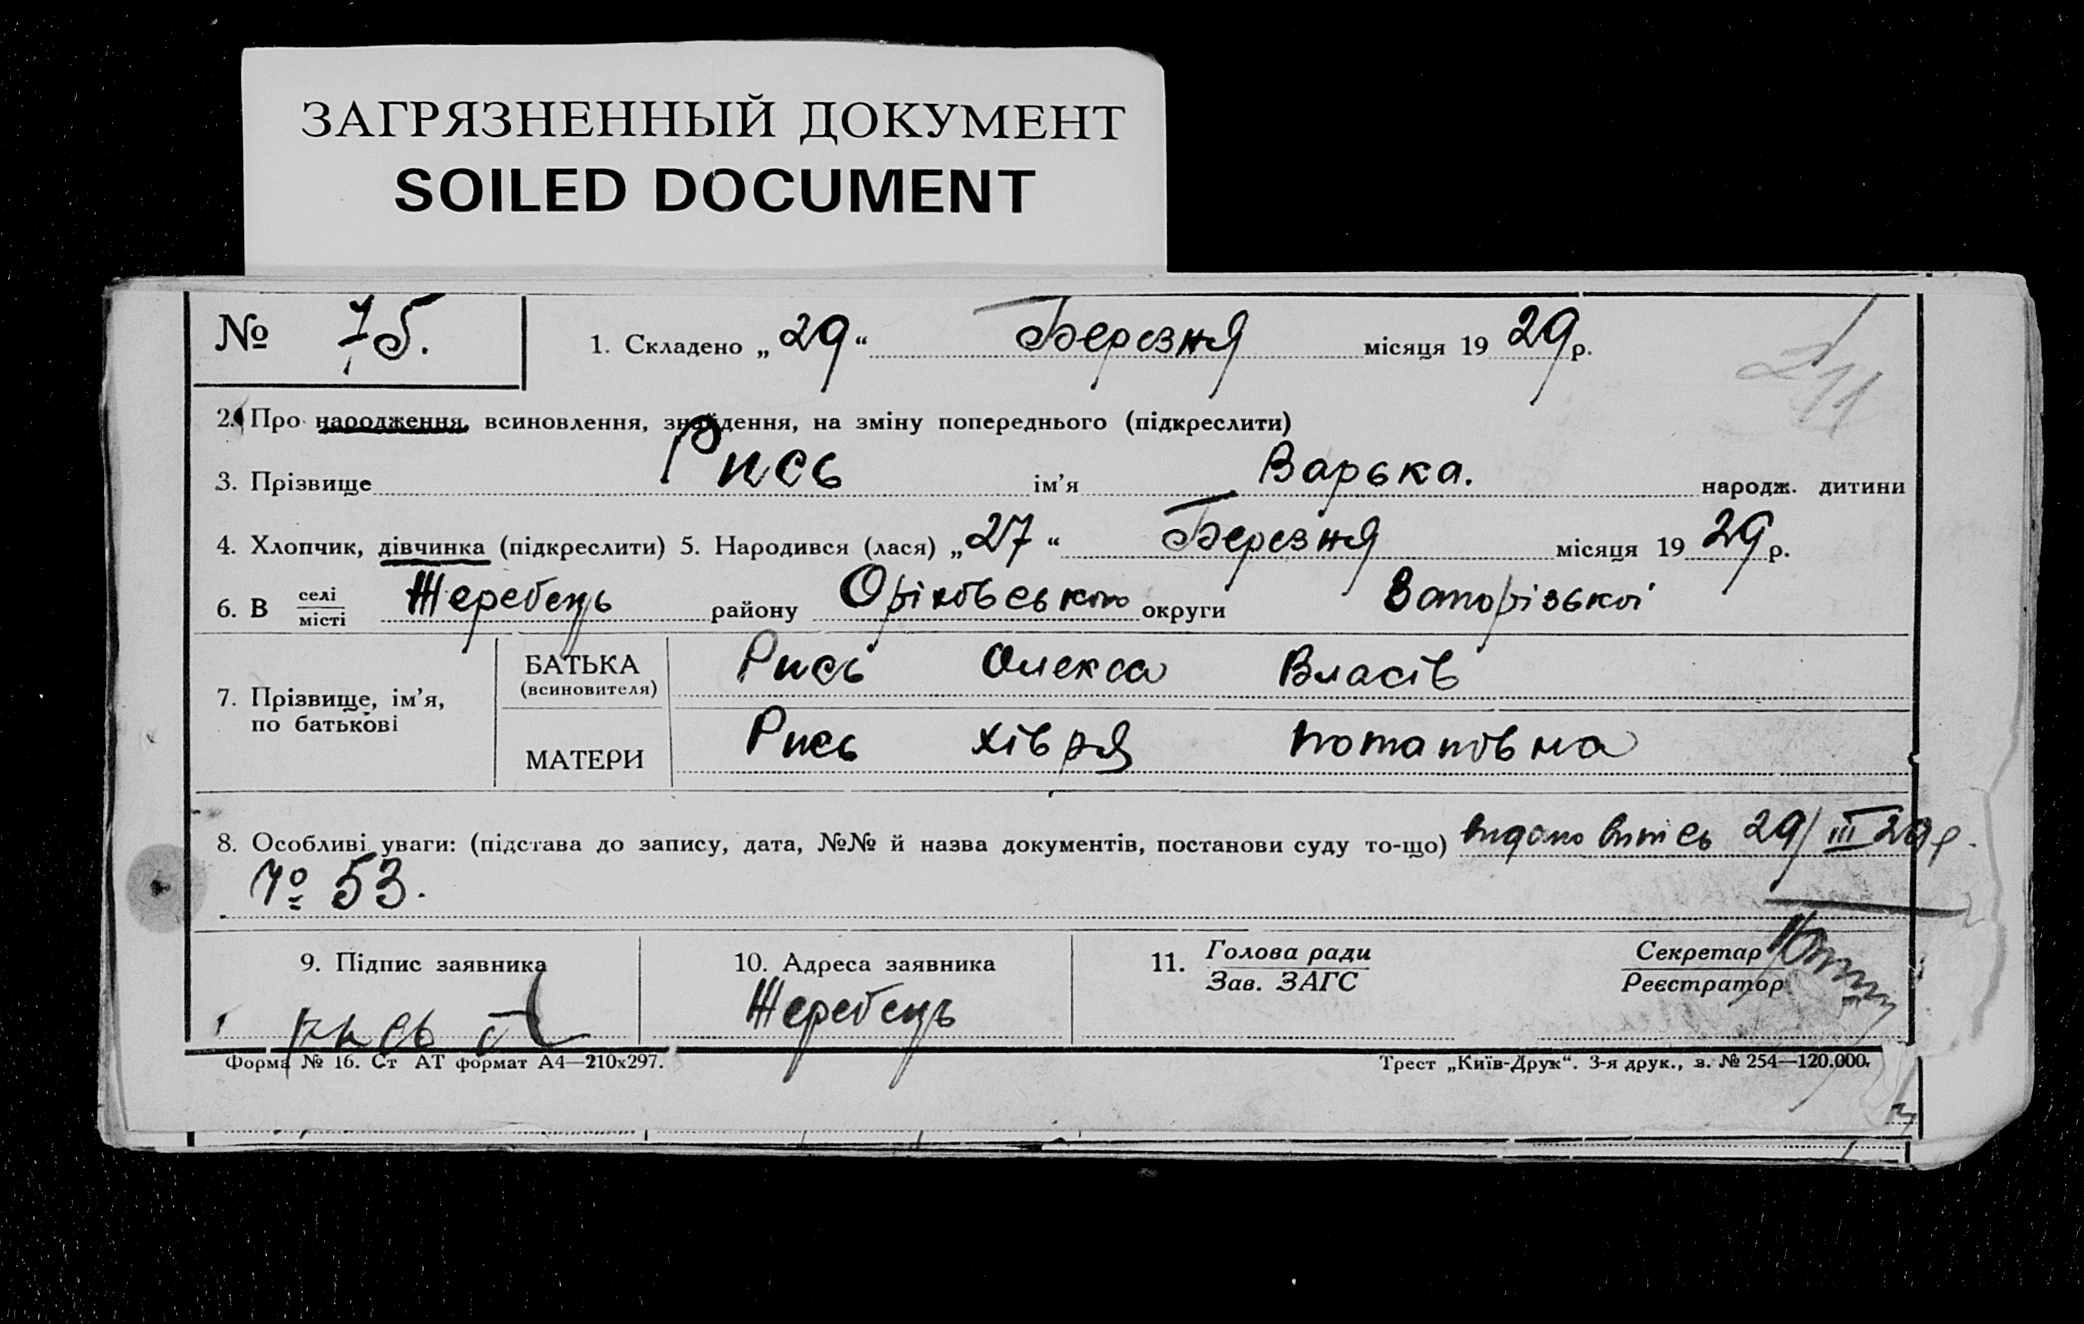 ЗАГРЯЗНЕННЫЙ ДОКУМЕНТ
SOILED DOCUMENT
№ 75. 1. Складено „29“ Березня місяця 1929 р.
2. Про народження, всиновлення, знайдення, на зміну попереднього (підкреслити)
3. Прізвище Рись ім’я Варька. народж. дитини
4. Хлопчик, дівчинка (підкреслити) 5. Народився (лася) „27“ Березня місяця 1929 р.
6. В селі/місті Жеребець району Оріховського округи Запорізької
7. Прізвище, ім’я, по батькові
БАТЬКА (всиновителя) Рись Олекса Власів
МАТЕРИ Рись Хівря Потаповна
8. Особливі уваги: (підстава до запису, дата, №№ й назва документів, постанови суду то-що) видано витісь 29/III 29 р.
№ 53.
9. Підпис заявника 10. Адреса заявника 11. Голова ради/Зав. ЗАГС Секретар/Реєстратор
Рись Жеребець
Форма № 16. Ст АТ формат А4—210х297. Трест „Київ-Друк“. 3-я друк., з. № 254—120.000.